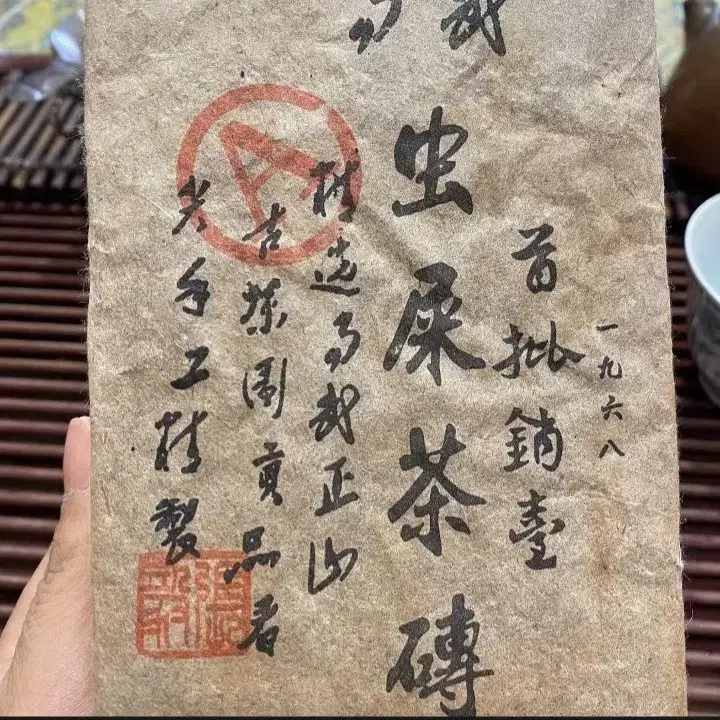 一九六八
首批銷臺
易武虫屎茶磚
选易武正山
古茶園貢品
老手工精製
A